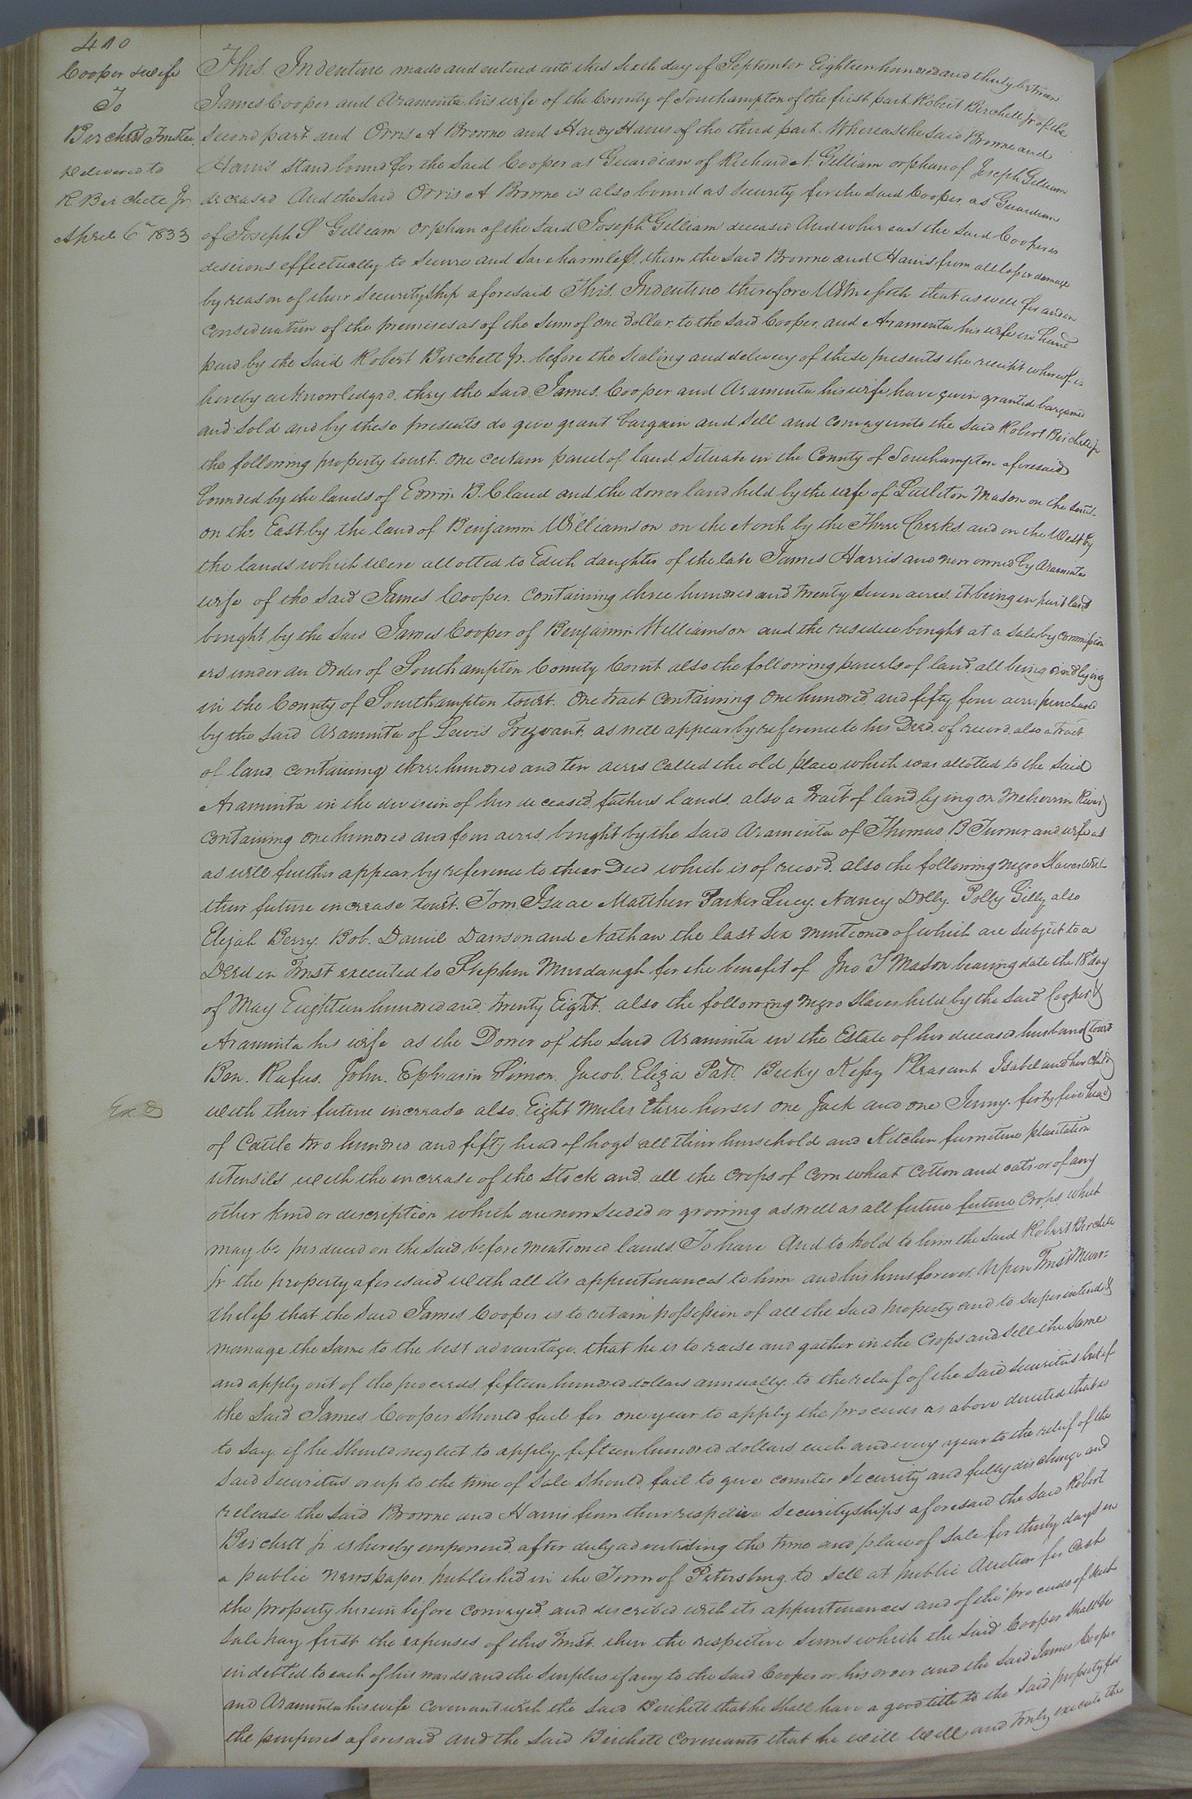 410
Cooper & wife
To
Birchett Trustee
Delivered to
R Birchett Jr
April 6th 1833
This Indenture made and entered into this sixth day of September Eighteen hundred and thirty between
James Cooper and Araminta his wife of the County of Southampton of the first part Robert Birchett Jr of the
second part and Orris A Browne and Harvy Harris of the third part. Whereas the said Browne and
Harris stand bound for the said Cooper as Guardian of Richard N. Gilliam orphan of Joseph Gilliam
deceased And the said Orris A Browne is also bound as security for the said Cooper, as Guardian
of Joseph S Gilliam orphan of the said Joseph Gilliam deceased And whereas the said Cooper is
desirous effectually to secure and save harmless them the said Browne and Harris from all loss or damage
by reason of their securityship aforesaid This Indenture therefore Witnesseth that as well for and in
consideration of the premises as of the sum of one dollar, to the said Cooper and Araminta his wife in hand
paid by the said Robert Birchett Jr. before the sealing and delivery of these presents the receipt whereof is
hereby acknowledged, they the said James Cooper and Araminta his wife, have given granted bargained
and sold and by these presents do give grant bargain and sell and convey unto the said Robert Birchett jr
the following property towit. One certain parcel of land situate in the County of Southampton aforesaid
bounded by the lands of Edwin B. Claud and the dower land held by the wife of Littleton Mason on the South
on the East by the land of Benjamin Williamson on the North by the Three Creeks and on the West by
the lands which were allotted to Edith daughter of the late James Harris and now owned by Araminta
wife of the said James Cooper. Containing three hundred and twenty seven acres, it being in part land
bought by the said James Cooper of Benjamin Williamson and the residue bought at a sale by commission
ers under an Order of Southampton County Court also the following parcels of land, all being and lying
in the County of Southampton towit. One tract containing one hundred and fifty four acres purchased
by the said Araminta of Lewis Trezvant as will appear by reference to his Deed of record, also a tract
of land, containing three hundred and ten acres called the old place which was allotted to the said
Araminta in the division of her deceased fathers lands, also a tract of land lying on Meherrin River
containing one hundred and four acres, bought by the said Araminta of Thomas B Turner and wife
as will further appear by reference to their Deed which is of record, also the following negro slaves with
their future increase towit. Tom Isaac Matthew Parker Lucy. Nancy Dolly. Polly Gilly also
Elijah Berry. Bob. Daniel Dawson and Nathan the last six mentioned of which are subject to a
Deed in Trust executed to Stephen Murdaugh for the benefit of Jno T Mason bearing date the 18th day
of May Eighteen hundred and twenty Eight. also the following negro slaves held by the said Cooper &
Araminta his wife as the Dower of the said Araminta in the Estate of her deceased husband (towit
Ben. Rufus. John. Ephraim Simon. Jacob. Eliza Patt Becky Kessy Pleasant Isabel and her child)
Exd
with their future increase also Eight mules three horses one Jack and one Jenny. forty five head
of Cattle two hundred and fifty head of hogs all their household and Kitchen furniture plantation
utensils with the increase of the stock and all the crops of corn wheat cotton and oats or of any
other kind or description which are now seeded or growing as well as all future future Crops which
may be produced on the said before mentioned lands. To have And to hold to him the said Robert Birchett
Jr the property aforesaid with all its appurtenances to him and his heirs forever. Upon Trust Never=
theless that the said James Cooper is to retain possession of all the said property and to superintend &
manage the same to the best advantage, that he is to raise and gather in the Crops and sell the same
and apply out of the proceeds fifteen hundred dollars annually. to the relief of the said securities but if
the said James Cooper should fail for one year to apply the proceeds as above directed that is
to say, if he should neglect to apply fifteen hundred dollars each and every year to the relief of the
said securities or up to the time of sale should fail to give counter security and fully discharge and
release the said Browne and Harris from their respective securityships aforesaid the said Robert
Birchett Jr is hereby empowered, after duly advertising the time and place of sale for thirty days in
a public newspaper, published in the Town of Petersburg, to sell at public Auction for Cash
the property herein before conveyed and described with its appurtenances and of the proceeds of such
sale pay first the expenses of this Trust then the respective sums which the said Cooper shall be
indebted to each of his wards and the surplus if any to the said Cooper or his order and the said James Cooper
and Araminta his wife covenant with the said Birchett that he shall have a good title to the said property for
the purposes aforesaid And the said Birchett Covenants that he will well and truly execute the